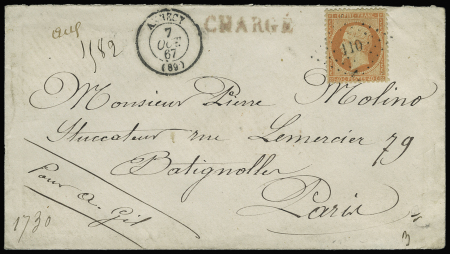 CHARGÉ
ANNECY
7
OCT
67
(89)
110
1182
Monsieur Pierre Molino
Stuccateur rue Lemercier 79
Batignolles
Paris
Pour A. Gil
1730
3